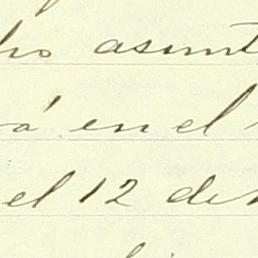 ho asunt
rá en el
el 12 de